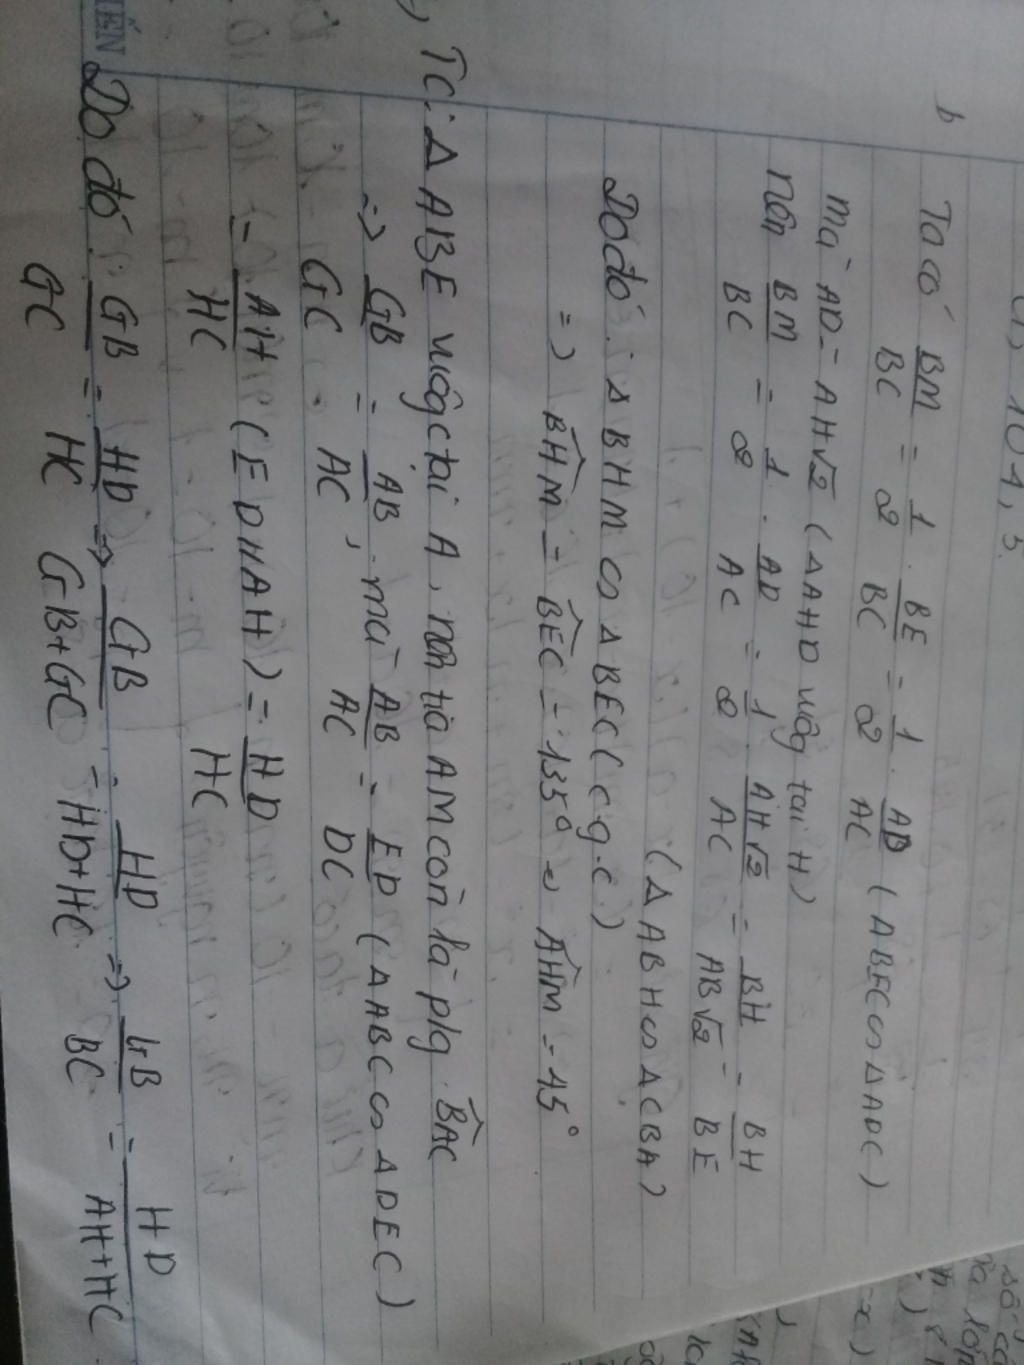 b
Ta có BM/BC = 1/2 . BE/BC = 1/2 . AD/AC (ΔBEC ∽ Δ ADC)
mà AD = AH√2 (ΔAHD vuôg tại H)
nên BM/BC = 1/2 . AD/AC = 1/2 . AH√2/AC = BH/AB√2 = BH/BE
(Δ ABH ∽ Δ CBA)
Do đó : Δ BHM ∽ Δ BEC (c.g.c)
=> BĤM = BÊC = 135° => AĤM = 45°
TC: Δ ABE vuôg tại A, nên tia AM còn là p/g BÂC
=> GB/GC = AB/AC, mà AB/AC = ED/DC (ΔABC ∽ Δ DEC)
= AH/HC (ED // AH) = HD/HC
Do đó : GB/GC = HD/HC => GB/GB+GC = HD/HD+HC => GB/BC = HD/AH+HC